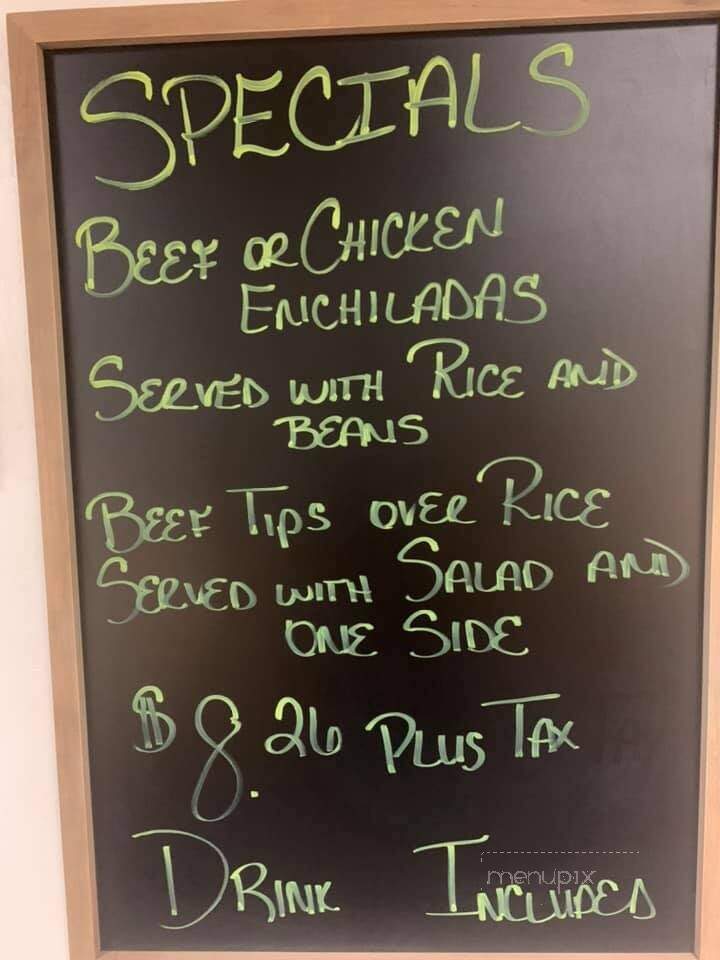 SPECIALS
BEEF OR CHICKEN
ENCHILADAS
SERVED WITH RICE AND
BEANS
BEEF TIPS OVER RICE
SERVED WITH SALAD AND
ONE SIDE
$8.26 PLUS TAX
DRINK INCLUDED
menupix